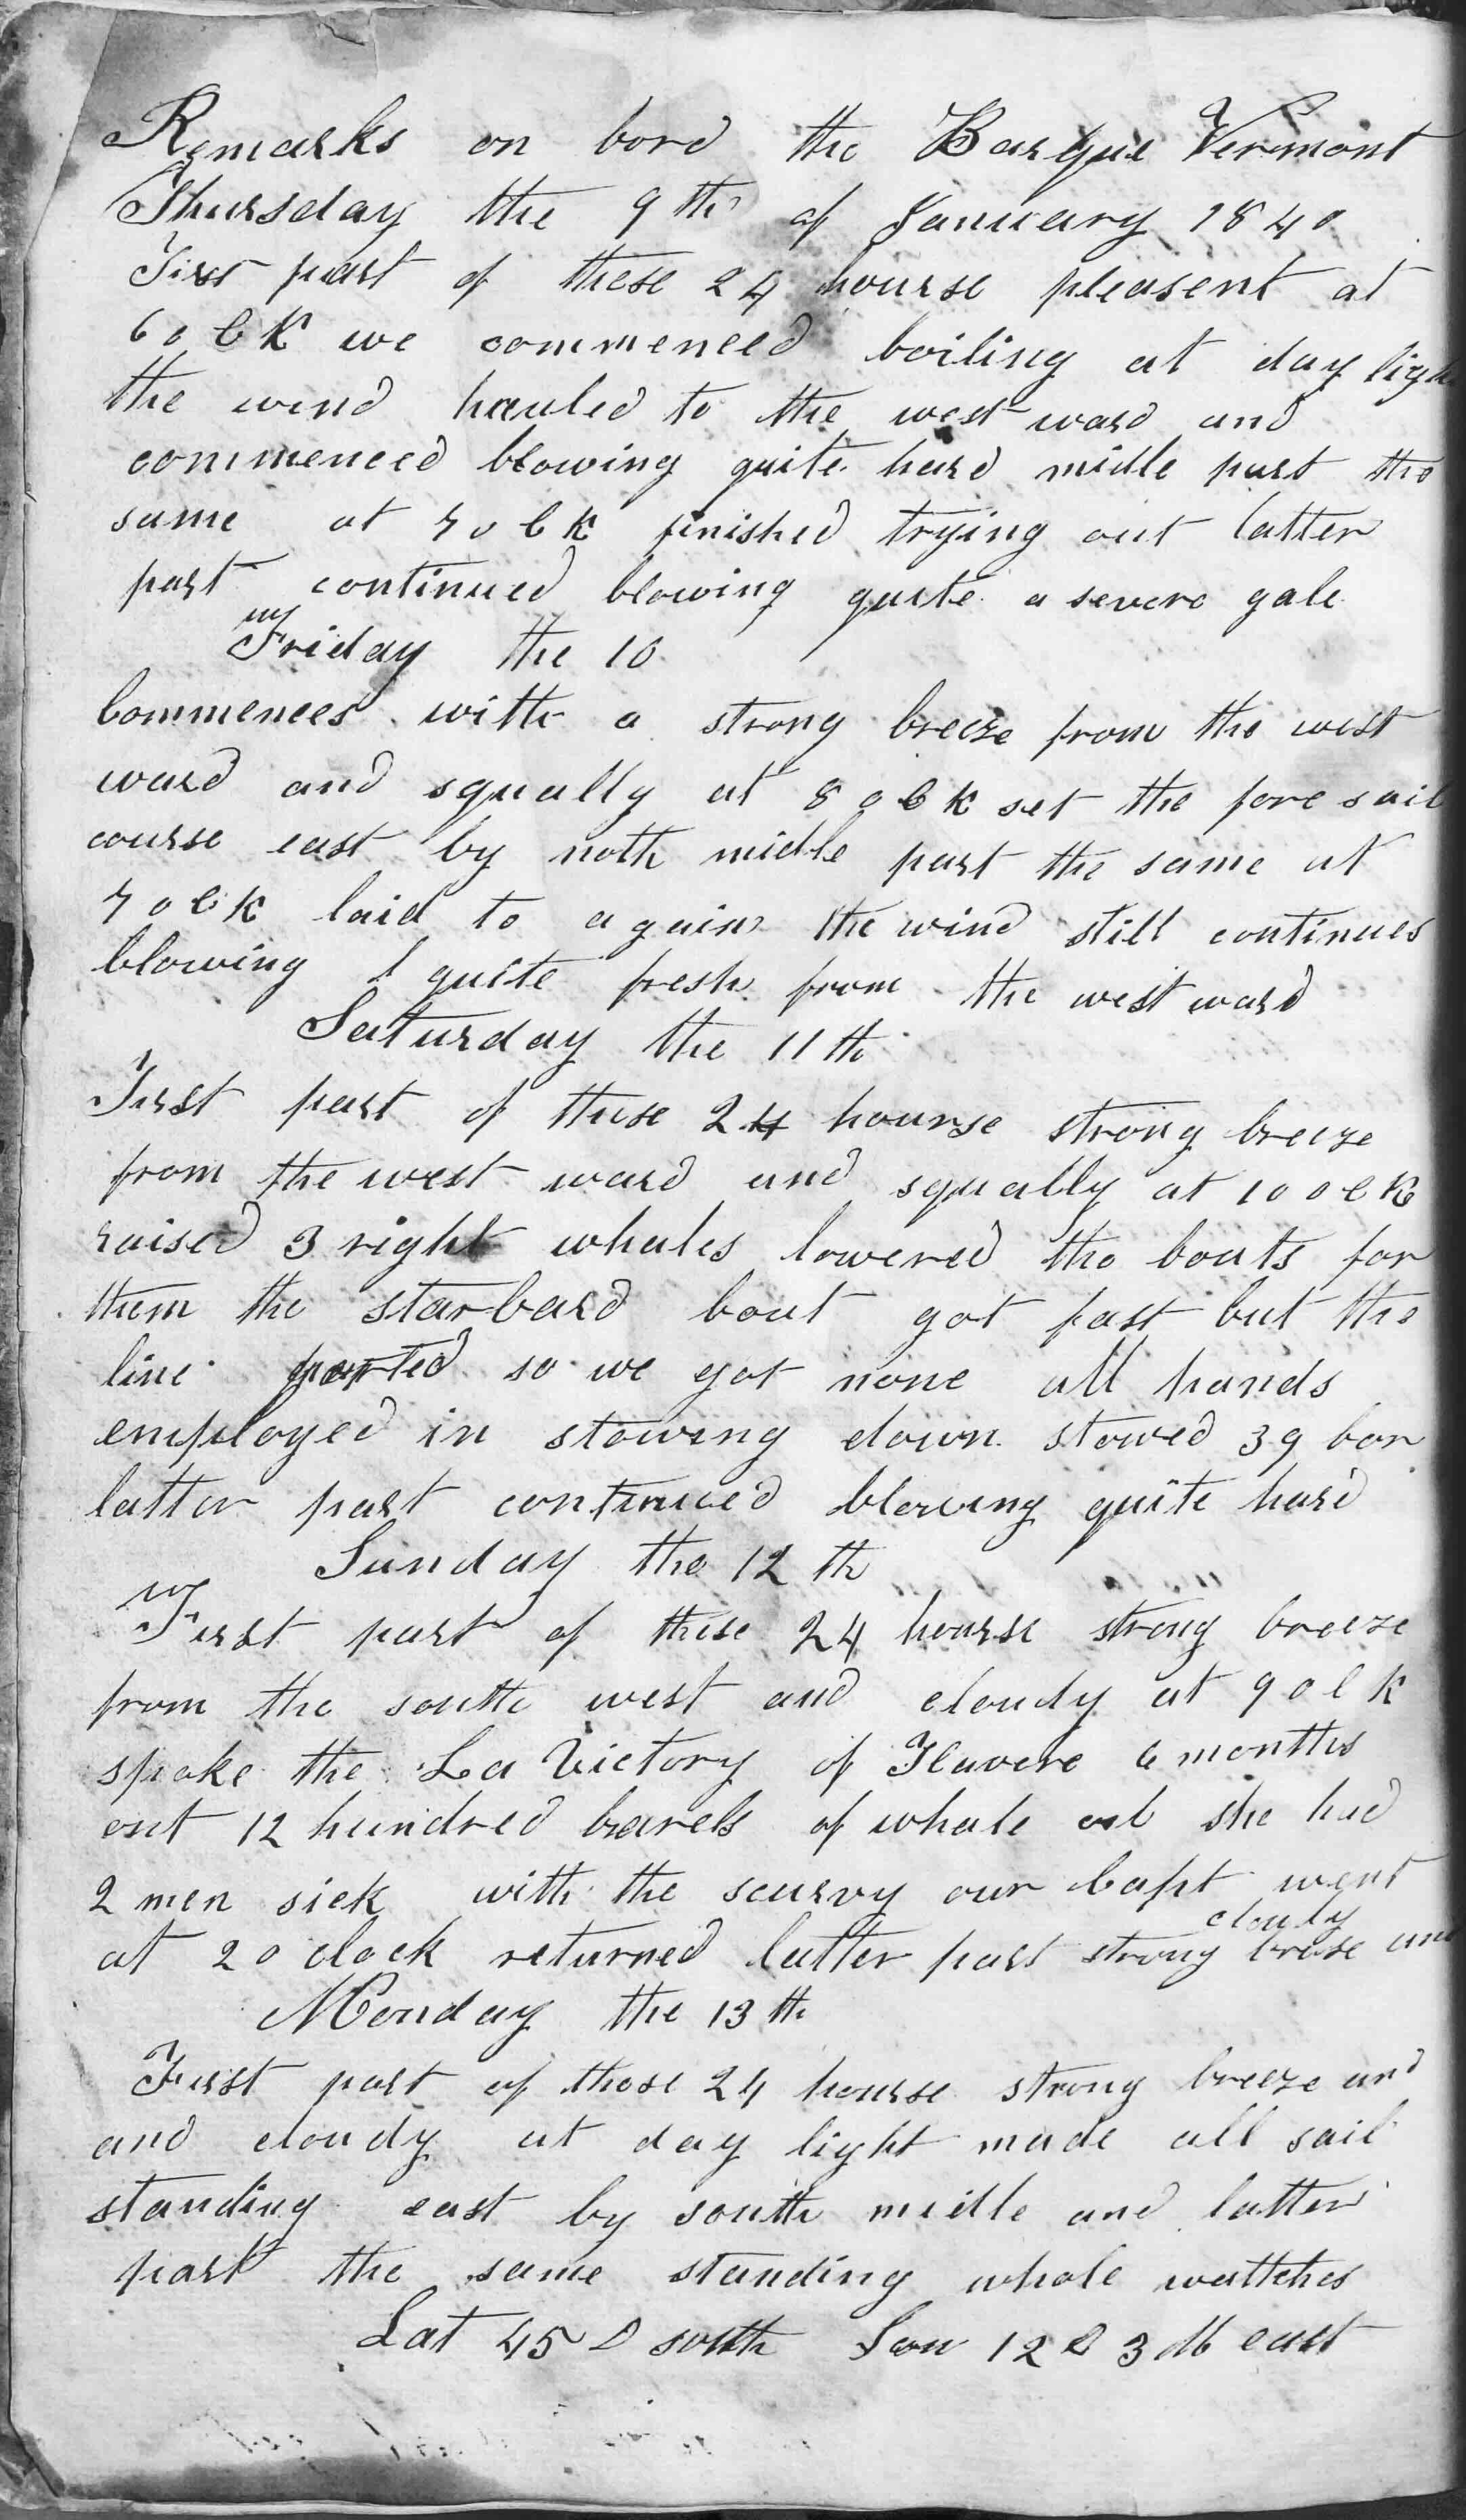 Remarks on bord the Barque Vermont
Thursday the 9th of January 1840
First part of these 24 hourse pleasent at
6 o Ck we commenced boiling at day ligh
the wind hauled to the west ward and
commenced blowing quite hard midle part the
same at 7 o Ck finished trying out latter
part continued blowing quite a severe gale
Friday the 10
Commences with a strong breeze from the west
ward and squally at 8 o Ck set the fore sail
course east by noth midle part the same at
7 o Ck laid to again the wind still continues
blowing quite fresh from the west ward
Saturday the 11 th
First part of these 24 hourse strong breeze
from the west ward and squally at 10 o Ck
raised 3 right whales lowered the boats for
them the starbard boat got fast but the
line parted so we got none all hands
employed in stowing down stowed 39 bar
latter part continued blowing quite hard
Sunday the 12 th
First part of these 24 hourse strong breeze
from the south west and cloudy at 9 o Ck
spoke the La Victory of Havere 6 months
out 12 hundred barels of whale oil she had
2 men sick with the scurvy our Capt went
cloudy
at 2 o clock returned latter part strong breese and
Monday the 13 th
First part of these 24 hourse strong breeze and
and cloudy at day light made all sail
standing east by south midle and latter
part the same standing whole wattches
Lat 45 D south Lon 12 D 3 M east